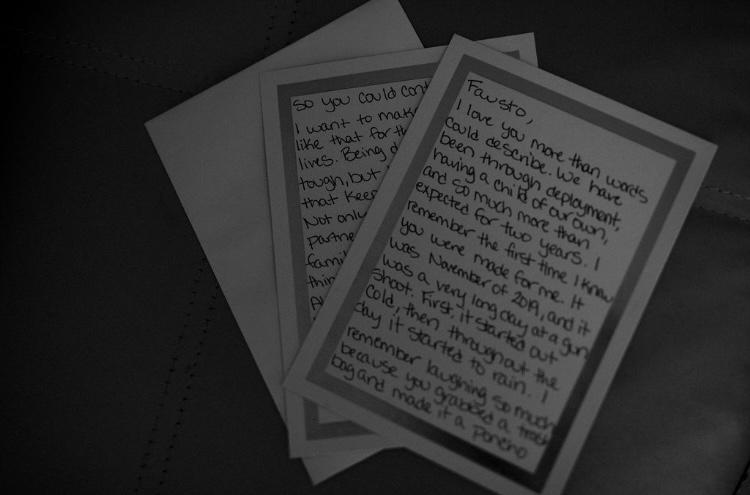 Fausto,
I love you more than words
could describe. We have
been through deployment,
having a child of our own,
and so much more than
expected for two years. I
remember the first time I knew
you were made for me. It
was November of 2019, and it
was a very long day at a gun
shoot. First, it started out
cold, then throughout the
day it started to rain. I
remember laughing so much
because you grabbed a trash
bag and made it a poncho
so you could cont
I want to make
like that for th
lives. Being d
tough, but
that keep
Not only
partne
famil
thin